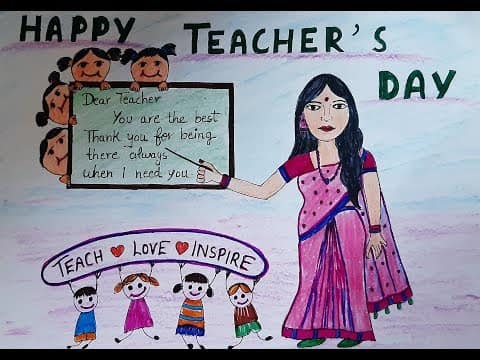 HAPPY TEACHER'S
DAY
Dear Teacher
You are the best
Thank you for being
there always
when I need you
TEACH LOVE INSPIRE